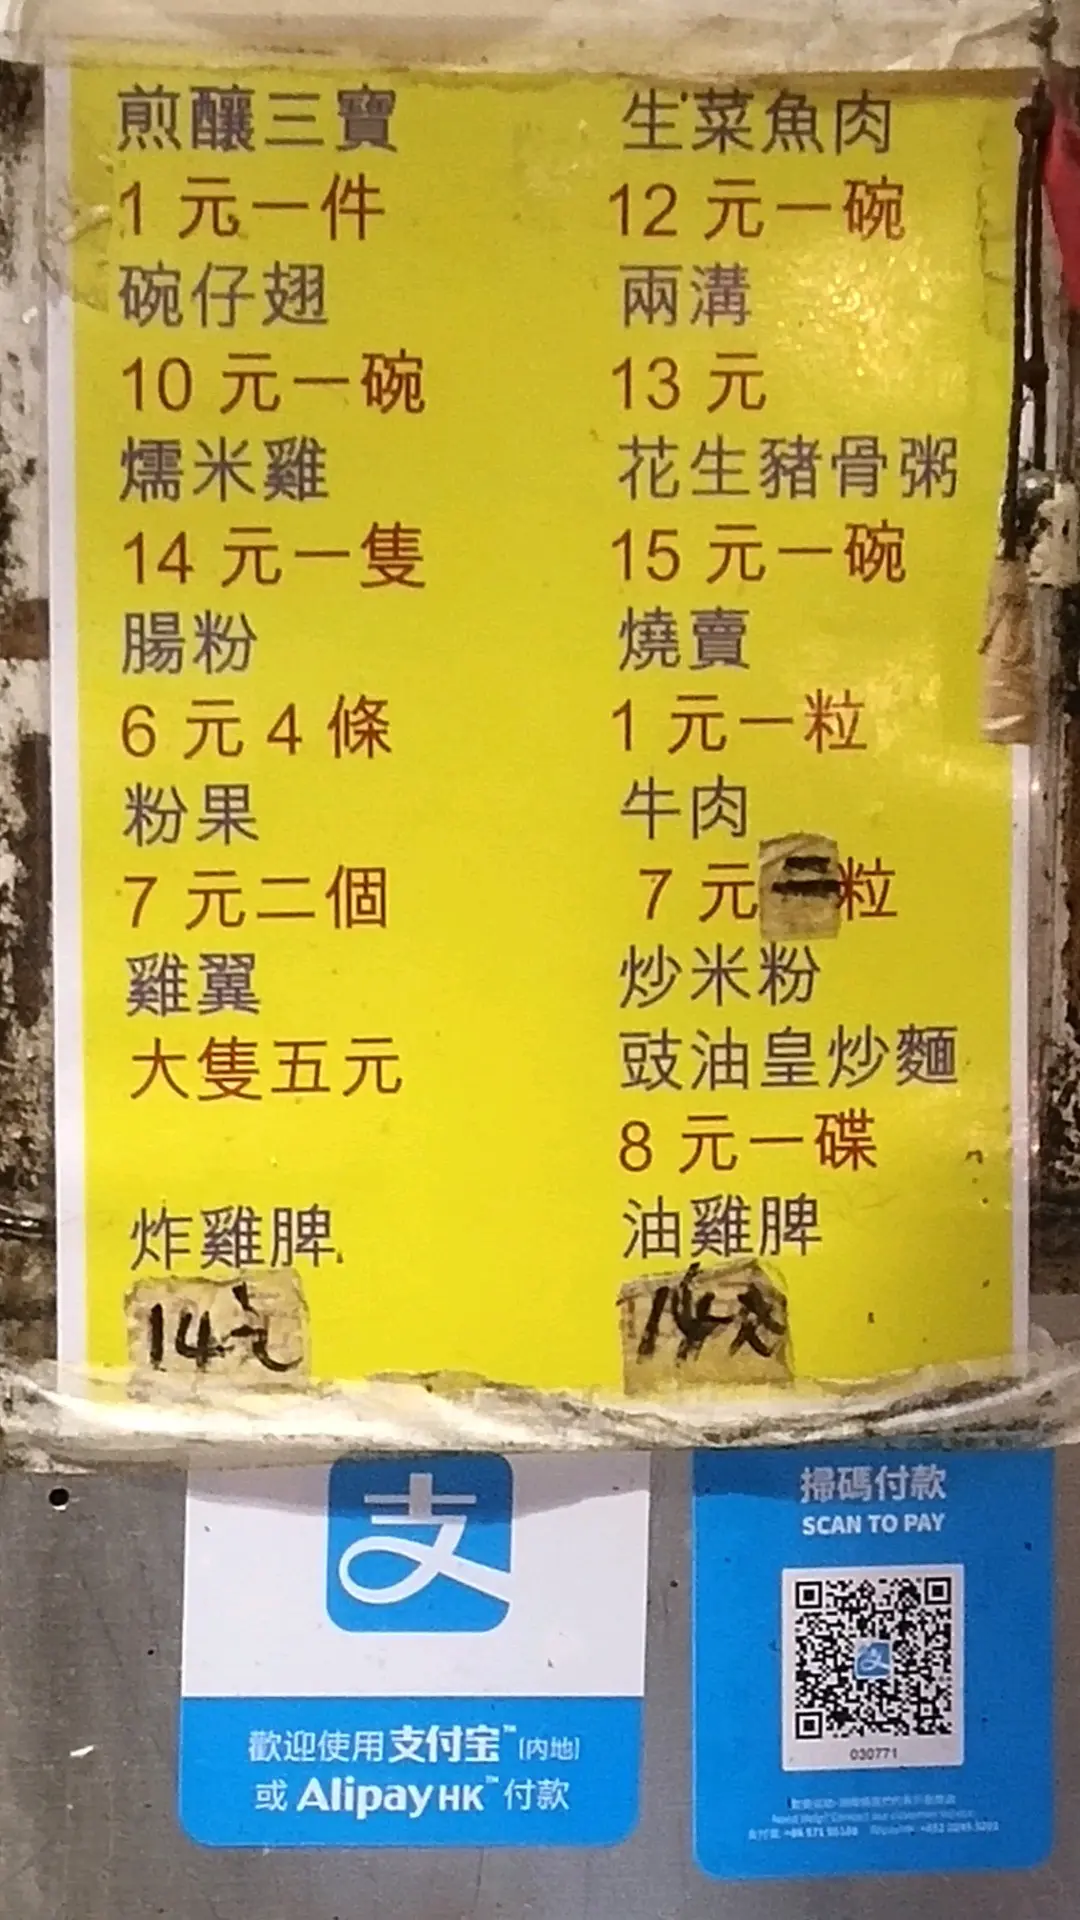 煎釀三寶
1 元一件
碗仔翅
10 元一碗
燸米雞
14 元一隻
腸粉
6 元 4 條
粉果
7 元二個
雞翼
大隻五元
炸雞脾
14元
生菜魚肉
12 元一碗
兩溝
13 元
花生豬骨粥
15 元一碗
燒賣
1 元一粒
牛肉
7 元二粒
炒米粉
豉油皇炒麵
8 元一碟
油雞脾
14元
支
歡迎使用支付宝™ (内地)
或 AlipayHK™ 付款
掃碼付款
SCAN TO PAY
支
030771